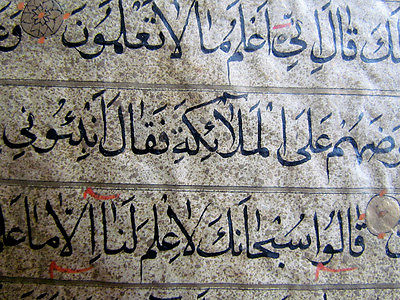 ك قَالَ اِنّي اَعْلَمُ مَا لَا تَعْلَمُونَ وَعَ
رَضَهُمْ عَلَى الْمَلَائِكَةِ فَقَالَ اَنْبِئُونِي
قَالُوا سُبْحَانَكَ لَا عِلْمَ لَنَا اِلَّا مَا عَلَ